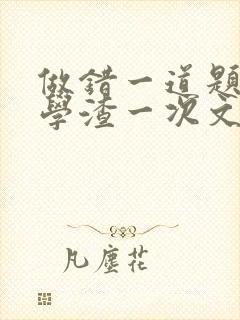 做錯一道題
學渣一次文
凡塵花